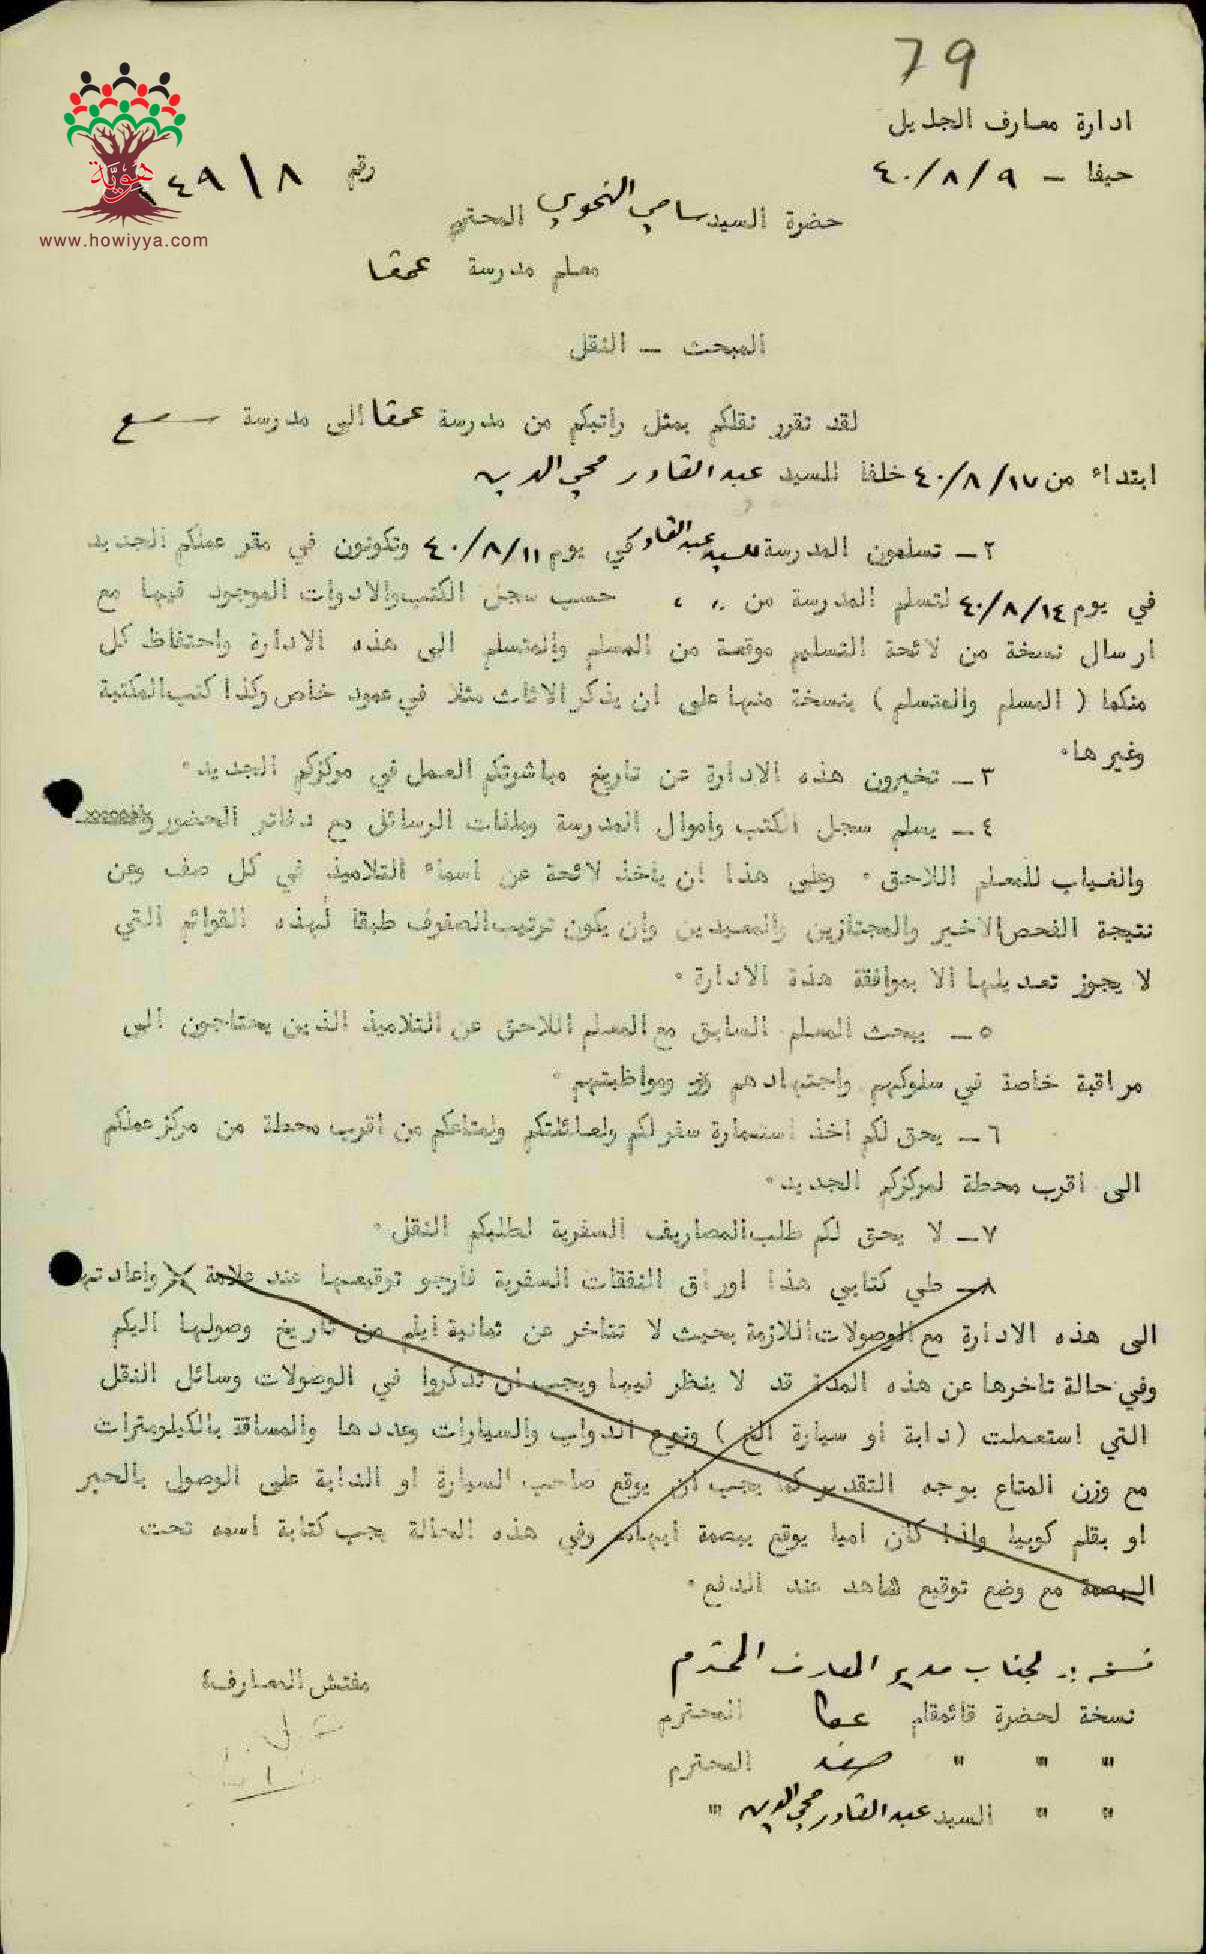 79
ادارة معارف الجليل
حيفا - ٤٠/٨/٩
رقم ٨/١٤٩
هوية
www.howiyya.com
حضرة السيد سامي النحوي المحترم
معلم مدرسة عمقا
المبحث - النقل
لقد تقرر نقلكم بمثل راتبكم من مدرسة عمقا الى مدرسة سعسع
ابتداء من ٤٠/٨/١٧ خلفا للسيد عبد القادر محي الدين
٢- تسلمون المدرسة للسيد عبد القادر كي يوم ٤٠/٨/١١ وتكونون في مقر عملكم الجديد
في يوم ٤٠/٨/١٤ لتسلم المدرسة من ,, ، حسب سجل الكتب والادوات الموجود فيها مع
ارسال نسخة من لائحة التسليم موقعة من المسلم والمتسلم الى هذه الادارة واحتفاظ كل
منكما ( المسلم والمتسلم ) بنسخة منها على ان يذكر الاثاث مثلا في عمود خاص وكذا كتب المكتبة
وغيرها٠
٣- تخبرون هذه الادارة عن تاريخ مباشرتكم العمل في مركزكم الجديد٠
٤- يسلم سجل الكتب واموال المدرسة وملفات الرسائل مع دفاتر الحضور
والغياب للمعلم اللاحق ٠ وعلى هذا ان ياخذ لائحة عن اسماء التلاميذ في كل صف وعن
نتيجة الفحص الاخير والمجتازين والمعيدين وان يكون ترتيب الصفوف طبقا لهذه القوائم التي
لا يجوز تعديلها الا بموافقة هذه الادارة ٠
٥- يبحث المعلم السابق مع المعلم اللاحق عن التلاميذ الذين يحتاجون الى
مراقبة خاصة في سلوكهم واجتهادهم ومواظبتهم ٠
٦- يحق لكم اخذ استمارة سفر لكم ولعائلتكم ولمتاعكم من اقرب محطة من مركز عملكم
الى اقرب محطة لمركزكم الجديد٠
٧- لا يحق لكم طلب المصاريف السفرية لطلبكم النقل ٠
٨- طي كتابي هذا اوراق النفقات السفرية فارجو توقيعها عند علامة X واعادتها
الى هذه الادارة مع الوصولات اللازمة بحيث لا تتاخر عن ثمانية ايام من تاريخ وصولها اليكم
وفي حالة تاخرها عن هذه المدة قد لا ينظر فيها ويجب ان تذكروا في الوصولات وسائل النقل
التي استعملت (دابة او سيارة الخ ) ونوع الدواب والسيارات وعددها والمسافة بالكيلومترات
مع وزن المتاع بوجه التقدير كما يجب ان يوقع صاحب السيارة او الدابة على الوصول بالحبر
او بقلم كوبيا واذا كان اميا يوقع ببصمة ابهامه وفي هذه الحالة يجب كتابة اسمه تحت
البصمة مع وضع توقيع شاهد عند الدفع٠
نسخة :- لجناب مدير المعارف المحترم
مفتش المعارف
نسخة لحضرة قائمقام عكا المحترم
" " " صفد المحترم
" " السيد عبد القادر محي الدين "